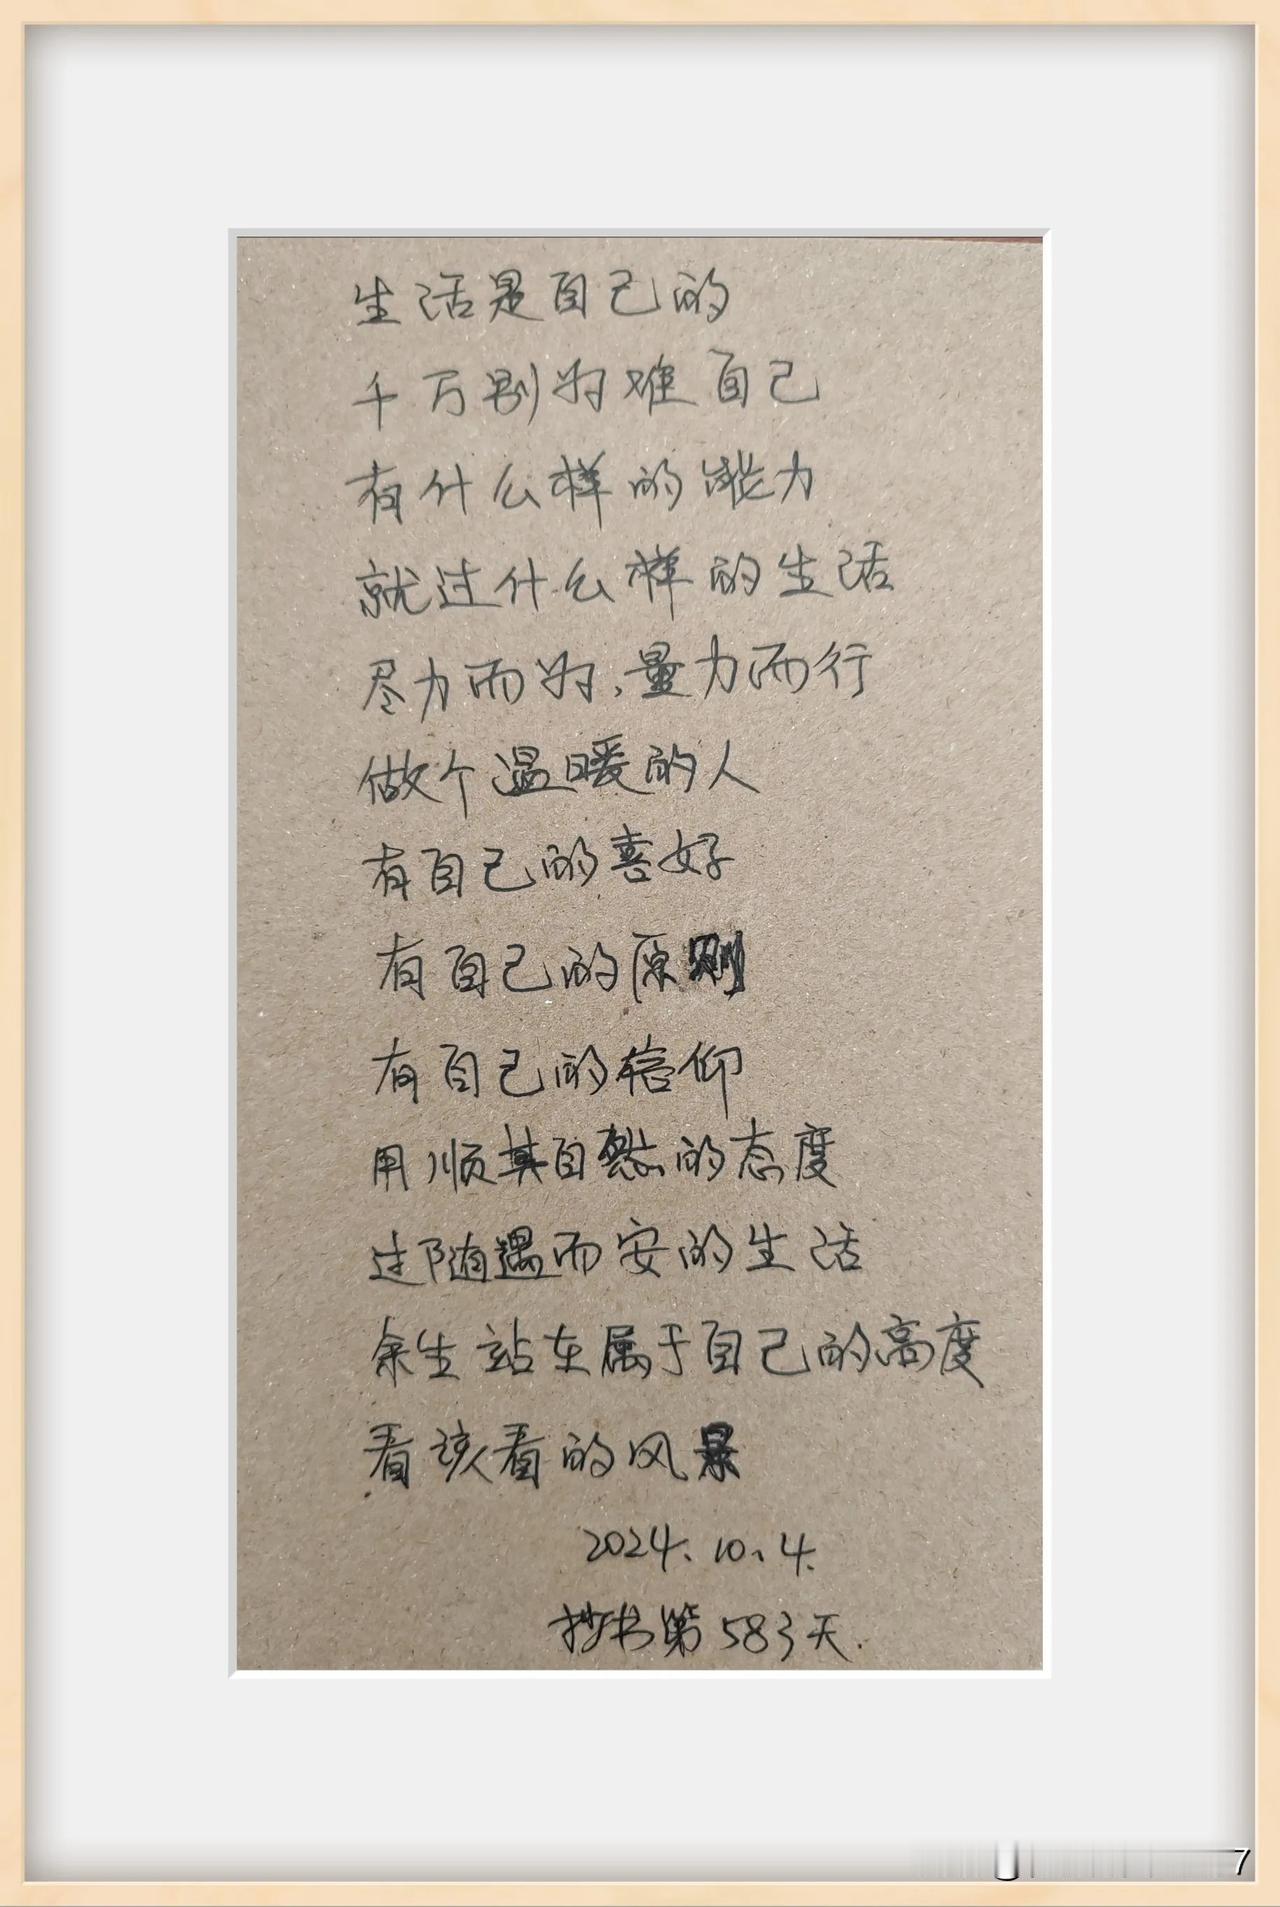 生活是自己的
千万别为难自己
有什么样的能力
就过什么样的生活
尽力而为，量力而行
做个温暖的人
有自己的喜好
有自己的原则
有自己的信仰
用顺其自然的态度
过随遇而安的生活
余生站在属于自己的高度
看该看的风景
2024.10.4.
抄书第583天.
7